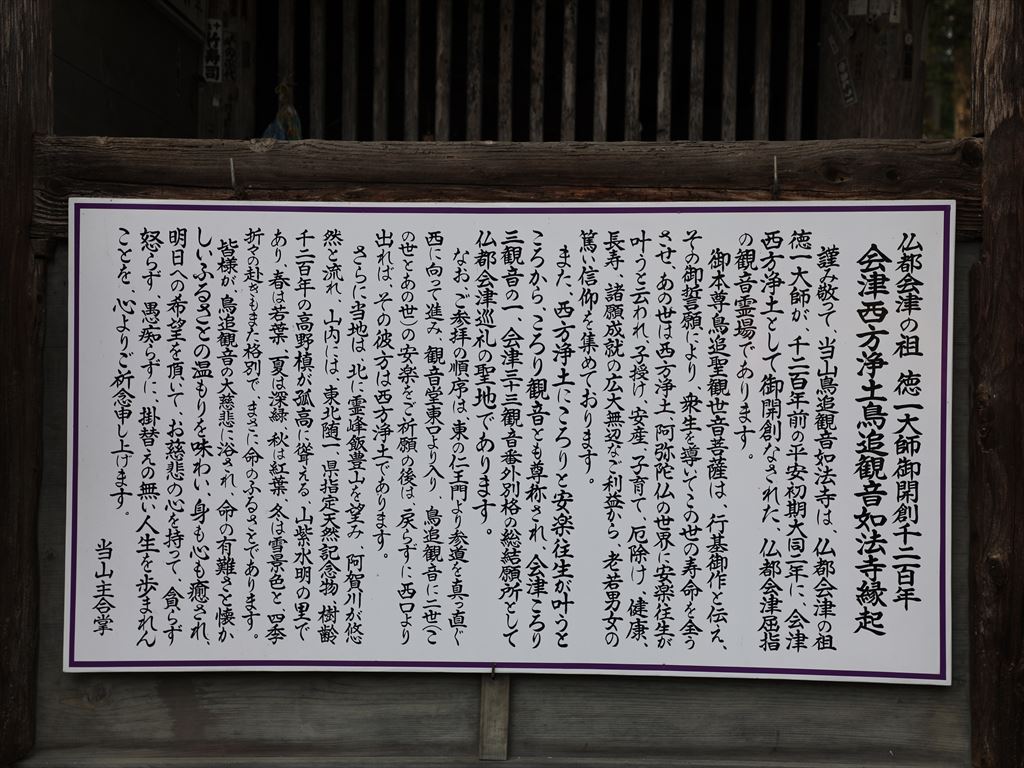 仏都会津の祖 徳一大師御開創千二百年
会津西方浄土鳥追観音如法寺縁起
謹み敬って、当山鳥追観音如法寺は、仏都会津の祖
徳一大師が、千二百年前の平安初期大同二年に、会津
西方浄土として御開創なされた、仏都会津屈指
の観音霊場であります。
御本尊鳥追聖観世音菩薩は、行基御作と伝え、
その御誓願により、衆生を導いてこの世の寿命を全う
させ、あの世は西方浄土、阿弥陀仏の世界に安楽往生が
叶うと云われ、子授け、安産、子育て、厄除け、健康、
長寿、諸願成就の広大無辺なご利益から、老若男女の
篤い信仰を集めております。
また、西方浄土にころりと安楽往生が叶うと
ころから、ころり観音とも尊称され、会津ころり
三観音の一、会津三十三観音番外別格の総結願所として
仏都会津巡礼の聖地であります。
なお、ご参拝の順序は、東の仁王門より参道を真っ直ぐ
西に向って進み、観音堂東口より入り、鳥追観音に二世(こ
の世とあの世)の安楽をご祈願の後は、戻らずに西口より
出れば、その彼方は西方浄土であります。
さらに当地は、北に霊峰飯豊山を望み、阿賀川が悠
然と流れ、山内には、東北随一、県指定天然記念物、樹齢
千二百年の高野槙が孤高に聳える、山紫水明の里で
あり、春は若葉、夏は深緑、秋は紅葉、冬は雪景色と、四季
折々の赴きもまた格別で、まさに命のふるさとであります。
皆様が、鳥追観音の大慈悲に浴され、命の有難さと懐か
しいふるさとの温もりを味わい、身も心も癒され、
明日への希望を頂いて、お慈悲の心を持って、貪らず
怒らず、愚痴らずに、掛替えの無い人生を歩まれん
ことを、心よりご祈念申し上げます。
当山主合掌